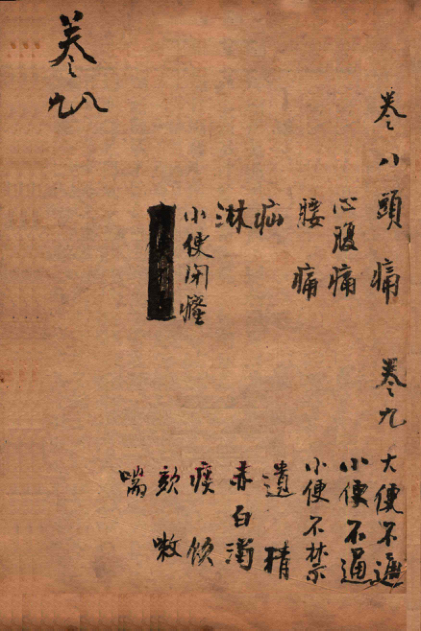 卷
八九
卷八
頭痛
心腹痛
腰痛
疝
淋
小便閉癃
卷九
大便不通
小便不通
小便不禁
遺精
赤白濁
痰飲
欬嗽
喘